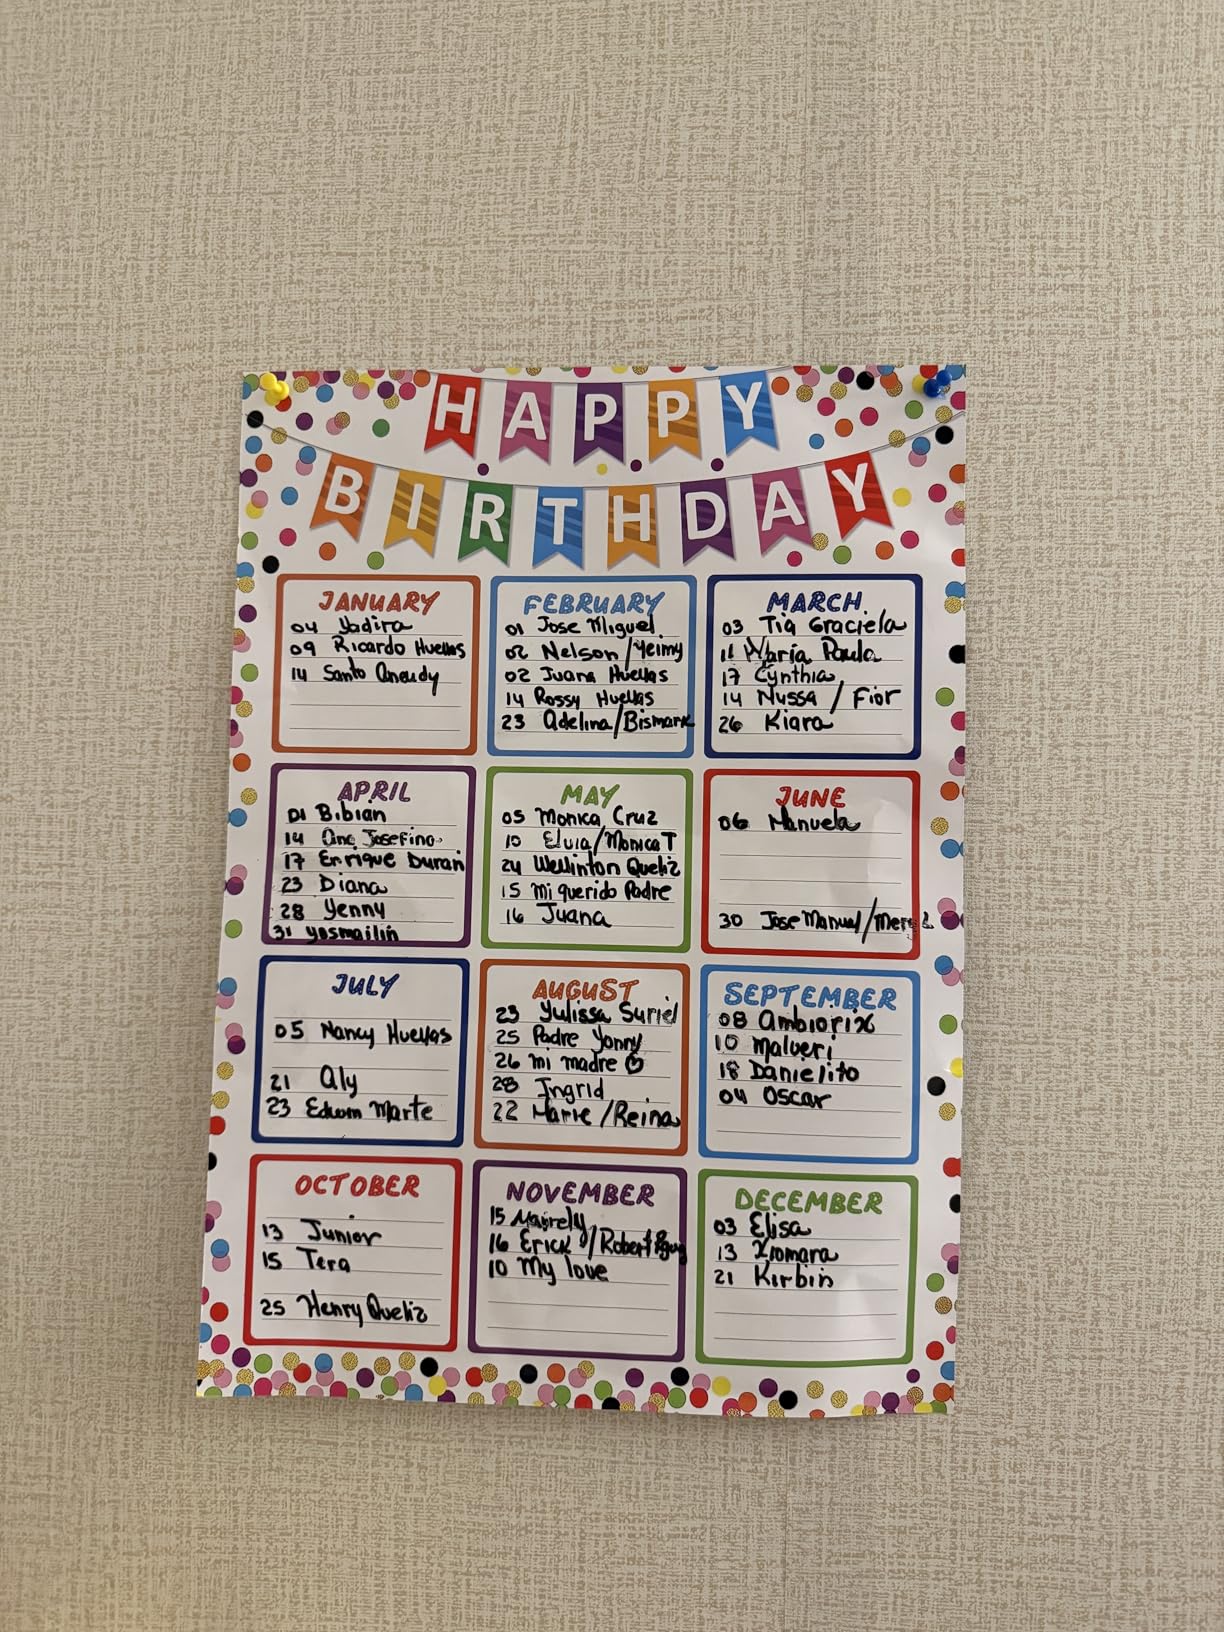 HAPPY
BIRTHDAY
JANUARY
04 Yadira
09 Ricardo Huellas
14 Santo Aneudy
FEBRUARY
01 Jose Miguel
02 Nelson/Yeimy
02 Juana Huellas
14 Rossy Huellas
23 Adelina/Bismark
MARCH
03 Tia Graciela
11 Maria Paula
17 Cynthia
14 Nussa / Fior
26 Kiara
APRIL
01 Bibian
14 Ana Josefina
17 Enrique Duran
23 Diana
28 Yenny
31 Yosmailin
MAY
05 Monica Cruz
10 Elvia/Monica T
24 Wellinton Queliz
15 Mi querido Padre
16 Juana
JUNE
06 Manuela
30 Jose Manuel/
JULY
05 Nancy Huellas
21 Aly
23 Edwin Marte
AUGUST
23 Yulissa Suriel
25 Padre Yonny
26 mi madre
28 Ingrid
22 Marie/Reina
SEPTEMBER
08 Ambiorix
10 Malveri
18 Danielito
04 Oscar
OCTOBER
13 Junior
15 Tera
25 Henry Queliz
NOVEMBER
15 Mairely
16 Erick/Robert
10 My love
DECEMBER
03 Elisa
13 Xiomara
21 Kirbin